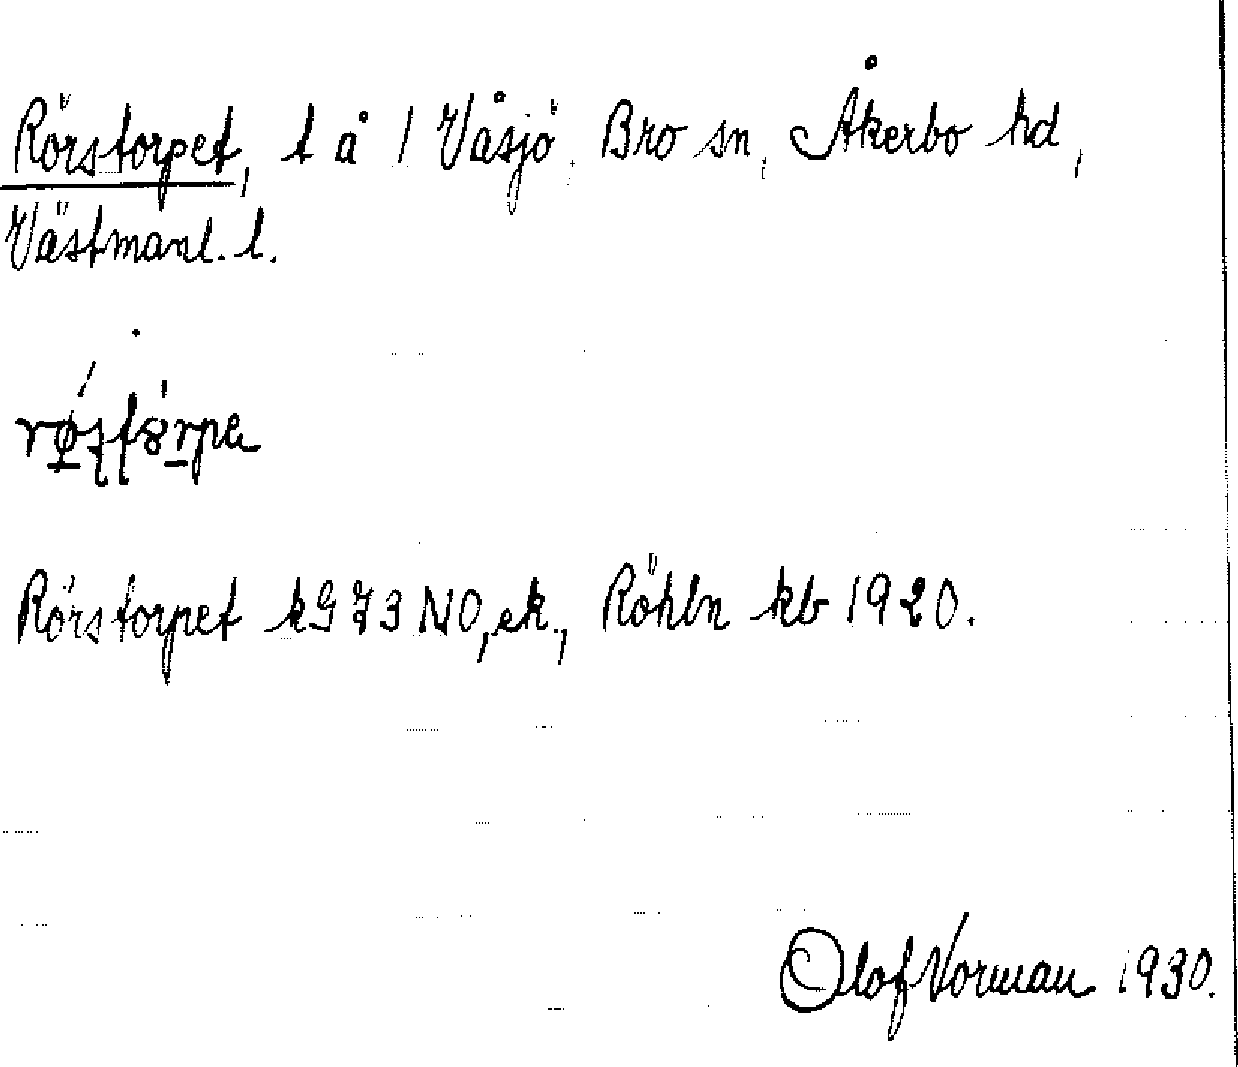 Rörstorpet, t å 1 Våsjö, Bro sn, Åkerbo hd,
Västmanl. l.
Rörstorpet kG 73 NO, ek., Röhln kb 1920.
Olof Norman 1930.